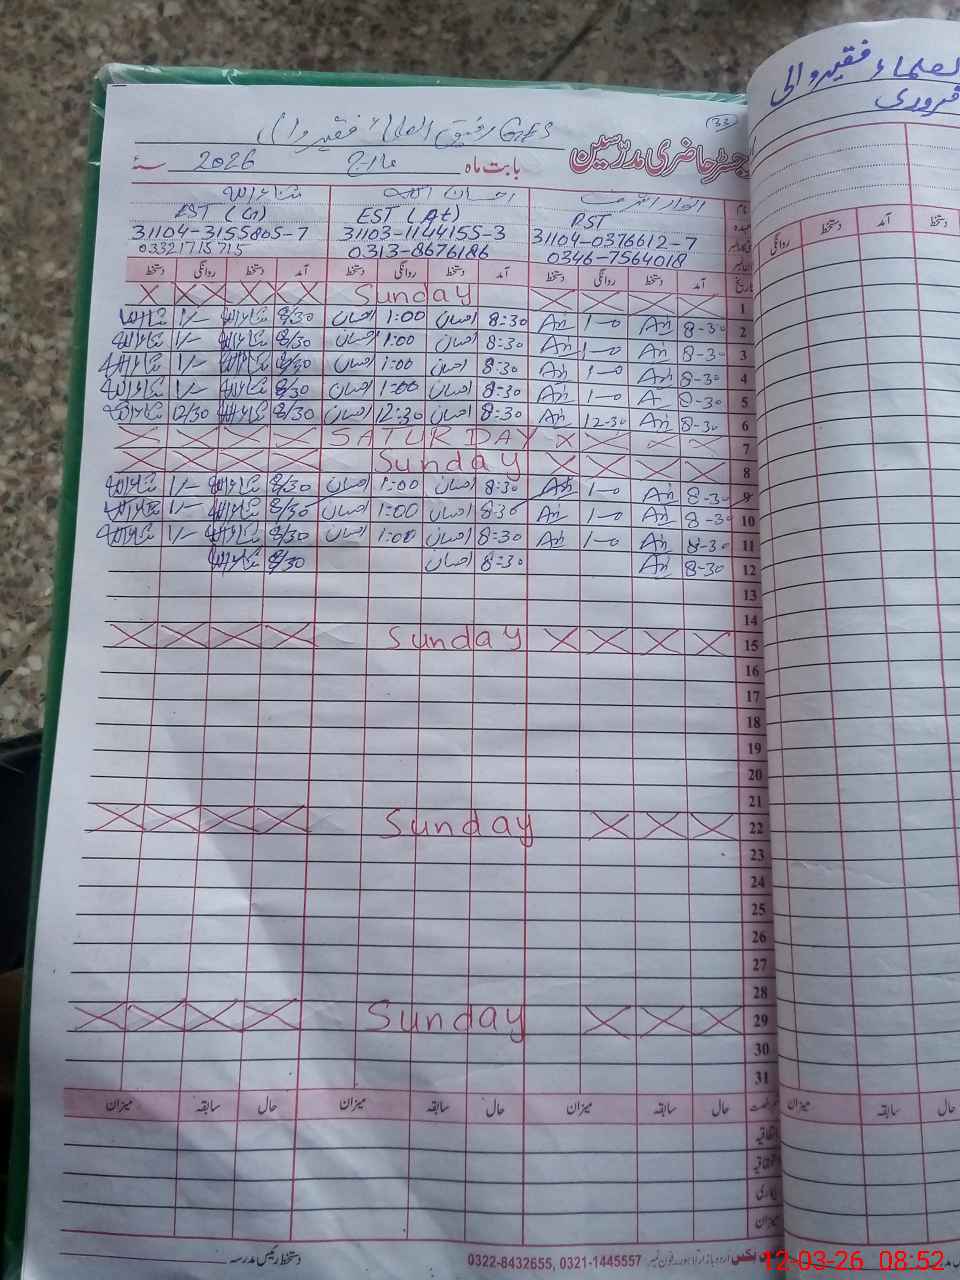 33
GES رفیق العلماء فقیروالی
رجسٹر حاضری مدرسین بابت ماہ مارچ 2026 سنہ
احسان اللہ ثناء اللہ
PST EST (At) EST
31104-0376612-7 31103-1144155-3 31104-3155805-7
0346-7564018 0313-8676186 03321715715
تاریخ آمد دستخط روانگی دستخط آمد دستخط روانگی دستخط آمد دستخط روانگی دستخط
1 Sunday
2 8-30 1-0 8:30 احسان 1:00 احسان 8/30 ثناء اللہ 1/- ثناء اللہ
3 8-30 1-0 8:30 احسان 1:00 احسان 8/30 ثناء اللہ 1/- ثناء اللہ
4 8-30 1-0 8:30 احسان 1:00 احسان 8/30 ثناء اللہ 1/- ثناء اللہ
5 8-30 1-0 8:30 احسان 1:00 احسان 8/30 ثناء اللہ 1/- ثناء اللہ
6 8-30 12-30 8:30 احسان 12:30 احسان 8/30 ثناء اللہ 12/30 ثناء اللہ
7 SATURDAY
8 Sunday
9 8-30 1-0 8:30 احسان 1:00 احسان 8/30 ثناء اللہ 1/- ثناء اللہ
10 8-30 1-0 8:30 احسان 1:00 احسان 8/30 ثناء اللہ 1/- ثناء اللہ
11 8-30 1-0 8:30 احسان 1:00 احسان 8/30 ثناء اللہ 1/- ثناء اللہ
12 8-30 8:30 احسان 8/30 ثناء اللہ
13
14
15 Sunday
16
17
18
19
20
21
22 Sunday
23
24
25
26
27
28
29 Sunday
30
31
حال سابقہ میزان حال سابقہ میزان حال سابقہ میزان
میزان
دستخط رئیس مدرسہ
اردو بازار لاہور فون نمبر 0322-8432655, 0321-1445557
العلماء فقیروالی
فروری
آمد دستخط روانگی دستخط
حال سابقہ میزان
12-03-26 08:52